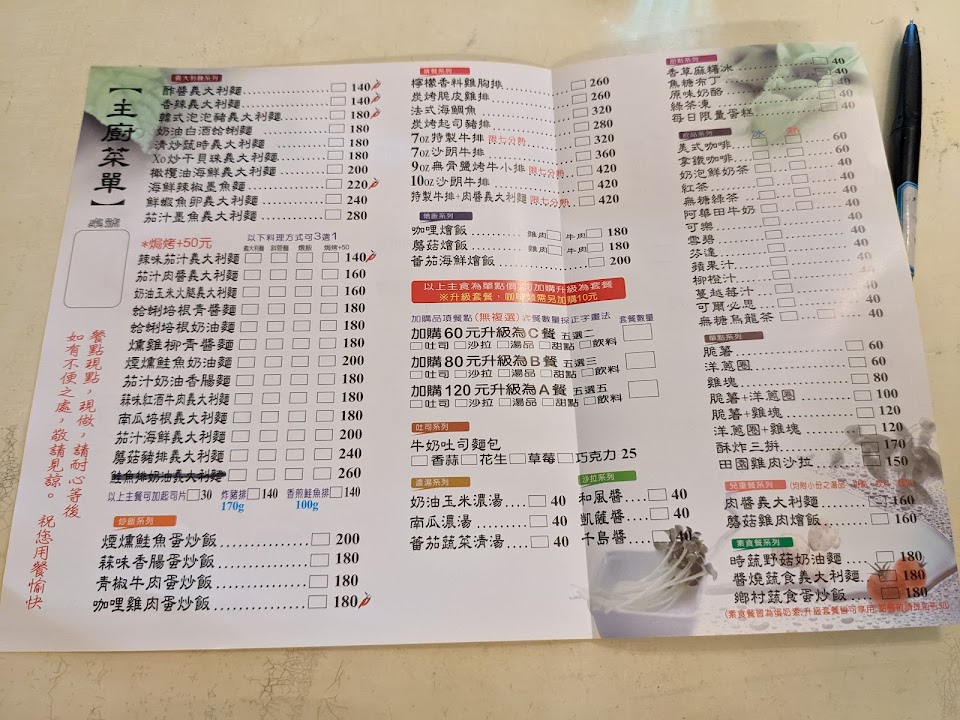 【主廚菜單】
桌號
餐點現點，現做，請耐心等後
如有不便之處，敬請見諒。 祝您用餐愉快
義大利麵系列
酢醬義大利麵 140
香辣義大利麵 140
韓式泡泡豬義大利麵 180
奶油白酒蛤蜊麵 180
清炒蔬時義大利麵 180
Xo炒干貝珠義大利麵 180
橄欖油海鮮義大利麵 200
海鮮辣椒墨魚麵 220
鮮蝦魚卵義大利麵 240
茄汁墨魚義大利麵 280
*焗烤+50元
以下料理方式可3選1
義大利麵 燉飯 焗烤+50
辣味茄汁義大利麵 140
茄汁肉醬義大利麵 160
奶油玉米火腿義大利麵 160
蛤蜊培根青醬麵 180
蛤蜊培根奶油麵 180
燻雞柳青醬麵 180
煙燻鮭魚奶油麵 200
茄汁奶油香腸麵 180
蒜味紅酒牛肉義大利麵 180
南瓜培根義大利麵 180
茄汁海鮮義大利麵 200
蘑菇豬排義大利麵 240
鮭魚排奶油義大利麵 260
以上主餐可加起司片 30 炸豬排 140 香煎鮭魚排 140
170g 100g
炒飯系列
煙燻鮭魚蛋炒飯 200
蒜味香腸蛋炒飯 180
青椒牛肉蛋炒飯 180
咖哩雞肉蛋炒飯 180
排餐系列
檸檬香料雞胸排 260
炭烤脆皮雞排 260
法式海鯛魚 320
炭烤起司豬排 280
7oz特製牛排 限七分熟 320
7oz沙朗牛排 360
9oz無骨鹽烤牛小排 限七分熟 420
10oz沙朗牛排 420
特製牛排+肉醬義大利麵 限七分熟 420
燴飯系列
咖哩燴飯 雞肉 牛肉 180
蘑菇燴飯 雞肉 牛肉 180
蕃茄海鮮燴飯 200
以上主食為單點價,可加購升級為套餐
※升級套餐，咖啡類需另加購10元
加購品項餐點(無複選)套餐數量採正字畫法 套餐數量
加購60元升級為C餐 五選二
吐司 沙拉 湯品 甜點 飲料
加購80元升級為B餐 五選三
吐司 沙拉 湯品 甜點 飲料
加購120元升級為A餐 五選五
吐司 沙拉 湯品 甜點 飲料
吐司系列
牛奶吐司麵包
香蒜 花生 草莓 巧克力 25
濃湯系列
奶油玉米濃湯 40
南瓜濃湯 40
蕃茄蔬菜清湯 40
沙拉系列
和風醬 40
凱薩醬 40
千島醬 40
甜點系列
香草麻糬冰 40
焦糖布丁 40
原味奶酪 40
綠茶凍 40
每日限量蛋糕 40
飲品系列 冰 熱
美式咖啡 60
拿鐵咖啡 60
奶泡鮮奶茶 40
紅茶 40
無糖綠茶 40
阿華田牛奶 40
可樂 40
雪碧 40
芬達 40
蘋果汁 40
柳橙汁 40
蔓越莓汁 40
可爾必思 40
無糖烏龍茶 40
單點系列
脆薯 60
洋蔥圈 60
雞塊 80
脆薯+洋蔥圈 100
脆薯+雞塊 120
洋蔥圈+雞塊 120
酥炸三拚 170
田園雞肉沙拉 150
兒童餐系列
肉醬義大利麵 160
蘑菇雞肉燴飯 160
素食餐系列
時蔬野菇奶油麵 180
醬燒蔬食義大利麵 180
鄉村蔬食蛋炒飯 180